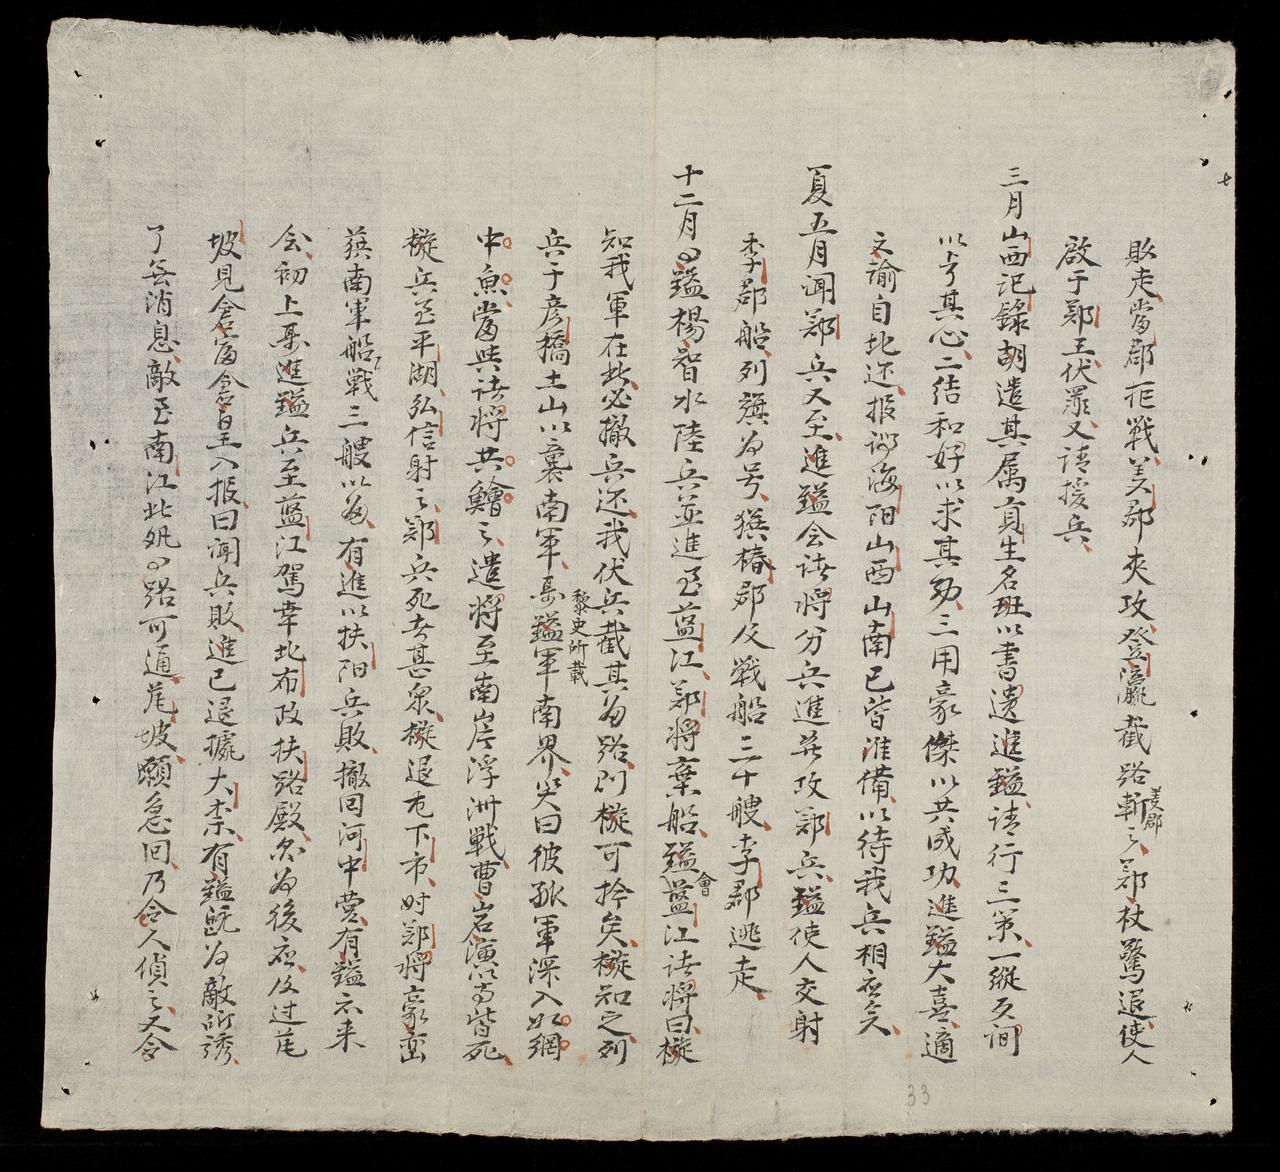 敗走當郡拒戰美郡夾攻登瀛截路斬美郡之鄭杖驚退使人
啟于鄭王伏罪又請援兵
三月山西記錄胡遣其属貢生名班以書遺進鎰請行三策一縱反間
以其心二結和好以求其助三用豪傑以共成功進鎰大喜適
文諭自北还报海阳山西山南已皆准備以待我兵相应矣
夏五月聞鄭兵又至進鎰会諸将分兵進並攻鄭兵鎰使人交射
李郡船列旗為号獛椿郡及戰船三十艘李郡逃走
十二月鎰楊智水陸兵並進至蓝江鄭将棄船鎰會蓝江諸将曰樅
知我軍在北必撤兵还我伏兵截其路則樅可擒矣樅知之列
兵于彦橋土山以襄南軍鎰軍南界笑曰彼孤軍深入如網
黎史所載
中魚當與諸将共鱠之遣将至南岸浮洲戰曹岩演以皆死
樅兵至平湖弘信射之鄭兵死者甚眾樅退屯下市时鄭将豪蛮
蔴南軍船戰三艘以為有進以扶阳兵敗撤回河中营有鎰不来
会初上进鎰兵至蓝江駕幸北布政扶路殿尔為後应及过
坡見舍富舍皇入报曰聞兵敗進已退據大柰有鎰既為敵所誘
了無消息敵至南江北路可通坡願急回乃令人偵之又令
33